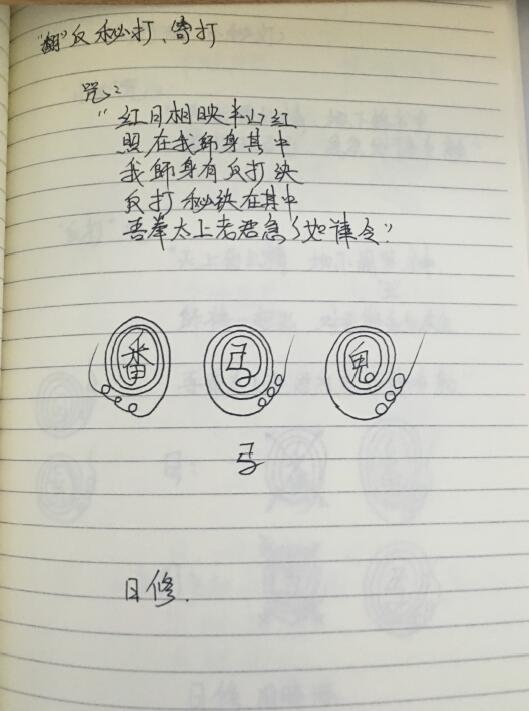 "翻"反秘打、寄打
咒:
"红日相映半山红
照在我师身其中
我师身有反打诀
反打秘诀在其中
吾奉太上老君急ㄑ如律令"
番 弓 鬼
弓
日修.